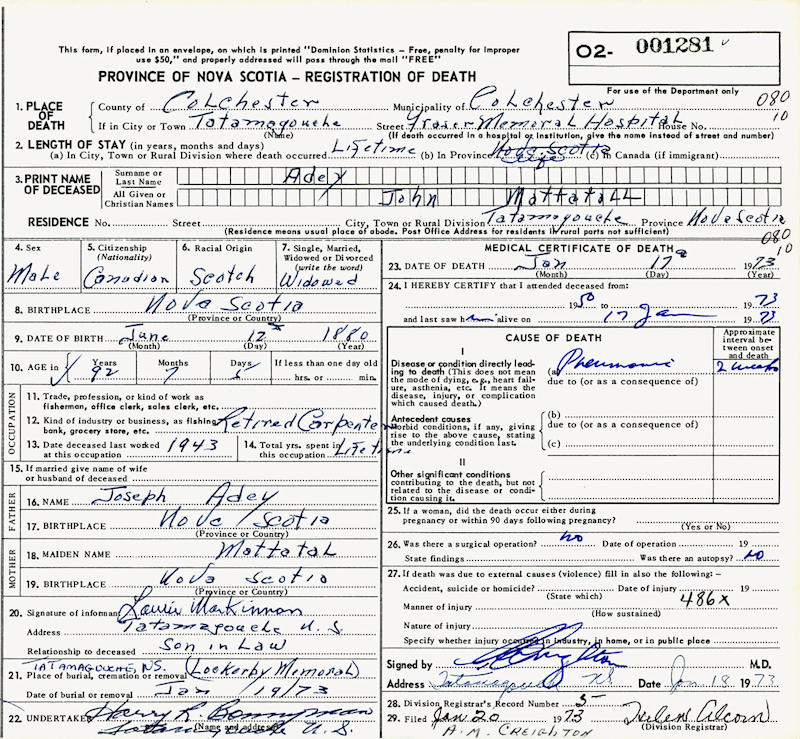 This form, if placed in an envelope, on which is printed "Dominion Statistics – Free, penalty for improper
use $50," and properly addressed will pass through the mail "FREE"
O2- 001281
For use of the Department only
PROVINCE OF NOVA SCOTIA – REGISTRATION OF DEATH
080
10
1. PLACE OF DEATH
County of Colchester Municipality of Colchester
If in City or Town Tatamagouche Street Fraser Memorial Hospital House No.
(Name) (If death occurred in a hospital or institution, give the name instead of street and number)
2. LENGTH OF STAY (in years, months and days)
(a) In City, Town or Rural Division where death occurred Lifetime (b) In Province Nova Scotia Life (c) in Canada (if immigrant)
3. PRINT NAME OF DECEASED
Surname or Last Name Adey
All Given or Christian Names John Mattatall
RESIDENCE No. Street City, Town or Rural Division Tatamagouche Province Nova Scotia
(Residence means usual place of abode. Post Office Address for residents in rural parts not sufficient)
080
10
4. Sex Male
5. Citizenship (Nationality) Canadian
6. Racial Origin Scotch
7. Single, Married, Widowed or Divorced (write the word) Widowed
8. BIRTHPLACE Nova Scotia
(Province or Country)
9. DATE OF BIRTH June 12 1880
(Month) (Day) (Year)
10. AGE Years 92 Months 7 Days 5 If less than one day old
hrs. or min.
OCCUPATION
11. Trade, profession, or kind of work as
fisherman, office clerk, sales clerk, etc.
12. Kind of industry or business, as fishing, Retired Carpenter
bank, grocery store, etc.
13. Date deceased last worked at this occupation 1943
14. Total yrs. spent in this occupation Lifetime
15. If married give name of wife
or husband of deceased
FATHER
16. NAME Joseph Adey
17. BIRTHPLACE Nova Scotia
(Province or Country)
MOTHER
18. MAIDEN NAME Mattatal
19. BIRTHPLACE Nova Scotia
(Province or Country)
20. Signature of informant MacKinnon
Address Tatamagouche N.S.
Relationship to deceased Son in Law
TATAMAGOUCHE, NS. (Lockerby Memorial)
21. Place of burial, cremation or removal
Date of burial or removal Jan 19/73
22. UNDERTAKER Harry L Bonnyman
Tatamagouche N.S.
(Name and address)
MEDICAL CERTIFICATE OF DEATH
23. DATE OF DEATH Jan 17 1973
(Month) (Day) (Year)
24. I HEREBY CERTIFY that I attended deceased from:
1950 to 1973
and last saw him alive on 17 Jan 1973
CAUSE OF DEATH
Approximate interval between onset and death
I
Disease or condition directly leading to death (This does not mean the mode of dying, e.g., heart failure, asthenia, etc. It means the disease, injury, or complication which caused death.)
(a) Pneumonia 2 weeks
due to (or as a consequence of)
Antecedent causes
Morbid conditions, if any, giving rise to the above cause, stating the underlying condition last.
(b)
due to (or as a consequence of)
(c)
II
Other significant conditions
contributing to the death, but not related to the disease or condition causing it.
25. If a woman, did the death occur either during
pregnancy or within 90 days following pregnancy?
(Yes or No)
26. Was there a surgical operation? No Date of operation 19
State findings Was there an autopsy? No
27. If death was due to external causes (violence) fill in also the following: –
Accident, suicide or homicide? Date of injury 19
(State which) 486X
Manner of injury
(How sustained)
Nature of injury
Specify whether injury occurred in industry, in home, or in public place
Signed by Creighton M.D.
Address Tatamagouche NS Date Jan 18 1973
28. Division Registrar's Record Number 5
29. Filed Jan 20 1973 Helen Alcorn
(Division Registrar)
A.M. CREIGHTON